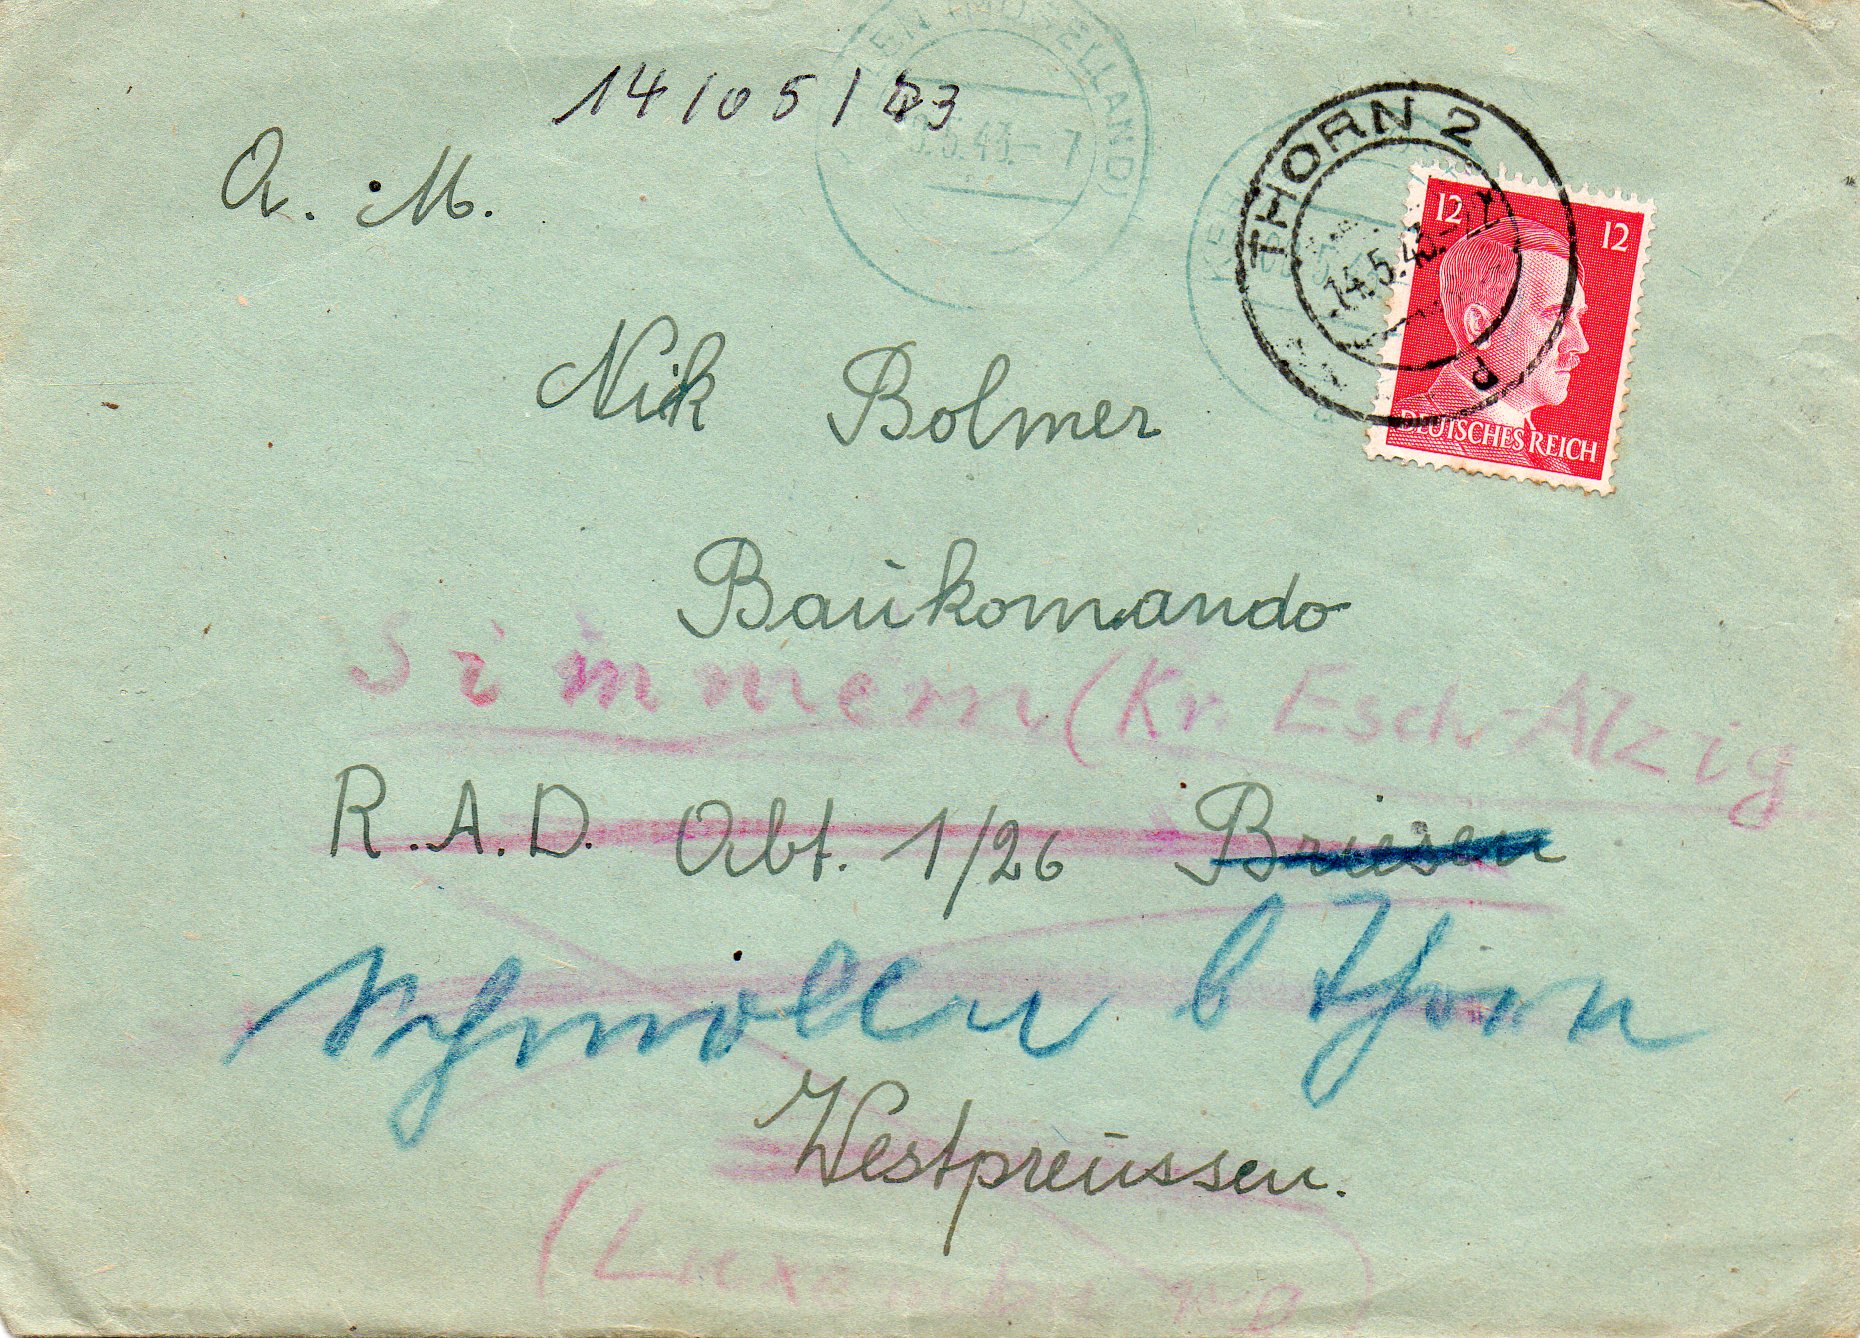 14/05/43
A. M.
THORN 2
14.5.43.
d
.5.43.- 7
12 12
DEUTSCHES REICH
Nik Bolmer
Baukomando
Simmern (Kr. Esch-Alzig
R.A.D. Abt. 1/26 Briesen
Schmolln b Thorn
Westpreussen.